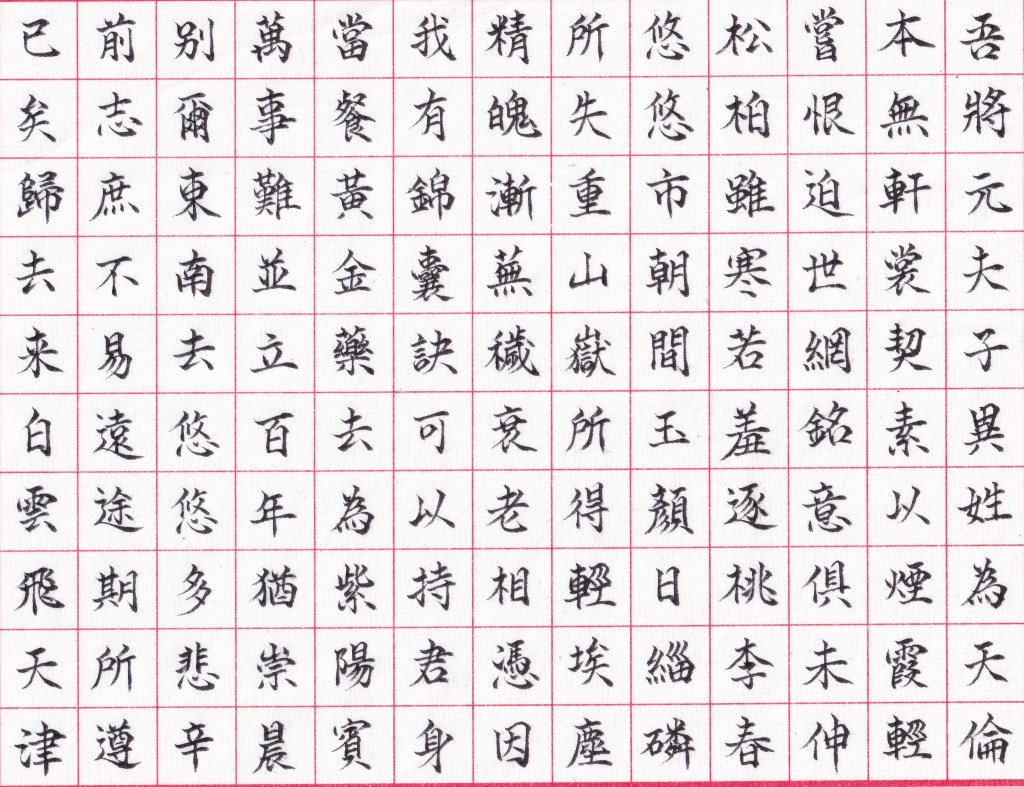 吾將元夫子異姓為天倫
本無軒裳契素以煙霞輕
嘗恨迫世網銘意俱未伸
松柏雖寒若羞逐桃李春
悠悠市朝間玉顏日緇磷
所失重山嶽所得輕埃塵
精魄漸蕪穢衰老相憑因
我有錦囊訣可以持君身
當餐黃金藥去為紫陽賓
萬事難並立百年猶崇晨
别爾東南去悠悠多悲辛
前志庶不易遠途期所遵
已矣歸去来白雲飛天津